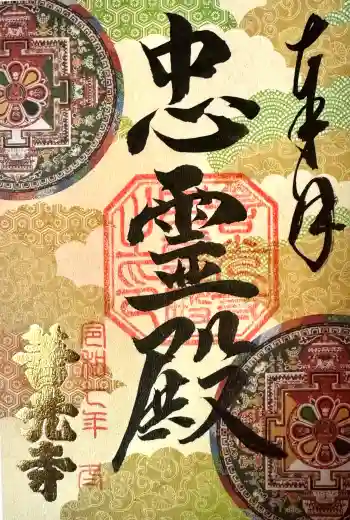 奉拝
忠霊殿
令和七年
善光寺